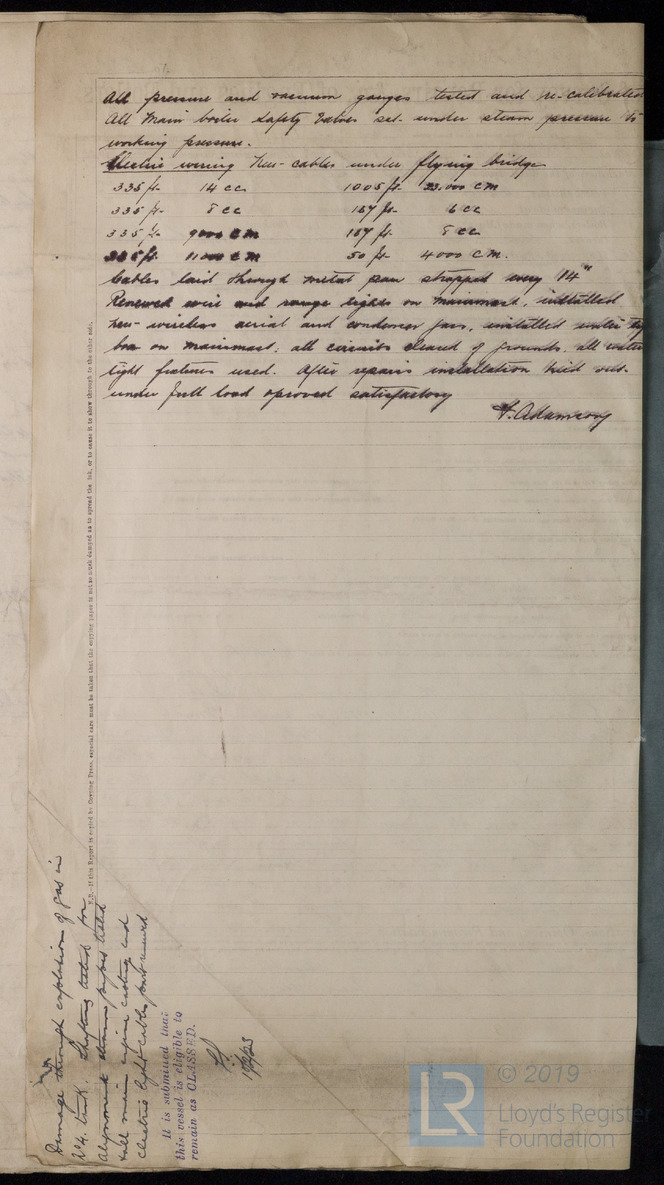 All pressure and vacuum gauges tested and re-calibrated
All Main boiler safety valves set under steam pressure to
working pressure.
Electric wiring New-cables under flying bridge
335 ft. 14 cc 1005 ft. 23.000 cm
335 ft. 8 cc 167 ft. 6 cc
335 ft. 9000 cm 167 ft. 8 cc
335 ft. 11000 cm 50 ft. 4000 cm.
Cables laid through metal pan strapped every 14"
Renewed wire and range lights on mainmast, installed
new-wireless aerial and condenser jars, installed water tig
box on mainmast; all circuits cleared of grounds. all water
tight fixtures used. After repairs installation tried out
under full load & proved satisfactory
Adamson
N.B.—If this Report is copied by Copying Press, especial care must be taken that the copying paper is not so much damped as to spread the ink, or to cause it to show through to the other side.
Damage through explosion of gas in
No4. tank. Shafting tested for
alignment steam pipes tested
main engine casting and
electric light cables part renewed
It is submitted that
this vessel is eligible to
remain as CLASSED.
© 2019
LR
Lloyd's Register
Foundation